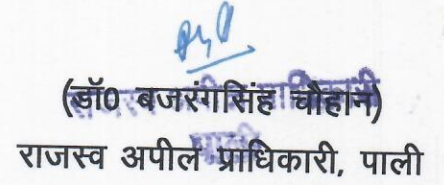 (डॉ0 बजरंगसिंह चौहान)
राजस्व अपील प्राधिकारी, पाली